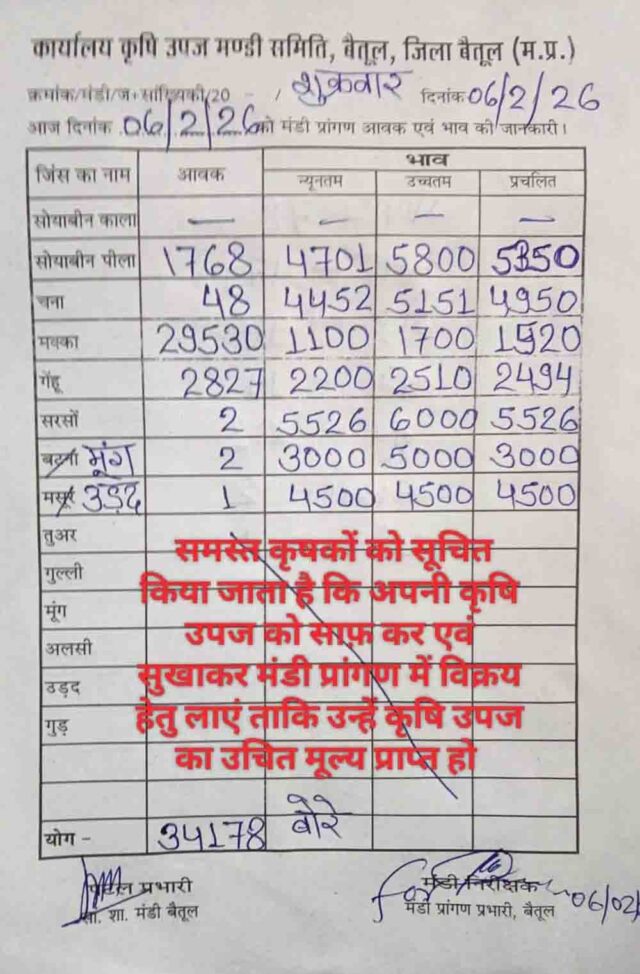 कार्यालय कृषि उपज मण्डी समिति, बैतूल, जिला बैतूल (म.प्र.)
क्रमांक/मंडी/ज+सांख्यिकी/20 - / शुक्रवार दिनांक 06/2/26
आज दिनांक 06/2/26 को मंडी प्रांगण आवक एवं भाव की जानकारी।
जिंस का नाम आवक भाव
न्यूनतम उच्चतम प्रचलित
सोयाबीन काला — — — —
सोयाबीन पीला 1768 4701 5800 5350
चना 48 4452 5151 4950
मक्का 29530 1100 1700 1520
गेंहू 2827 2200 2510 2494
सरसों 2 5526 6000 5526
बटना मूंग 2 3000 5000 3000
मसूर उड़द 1 4500 4500 4500
तुअर
गुल्ली
मूंग
अलसी
उड़द
गुड़
समस्त कृषकों को सूचित
किया जाता है कि अपनी कृषि
उपज को साफ़ कर एवं
सुखाकर मंडी प्रांगण में विक्रय
हेतु लाएं ताकि उन्हें कृषि उपज
का उचित मूल्य प्राप्त हो
योग - 34178 बोरे
प्रभारी
सा. शा. मंडी बैतूल
for मंडी निरीक्षक 06/02/
मंडी प्रांगण प्रभारी, बैतूल